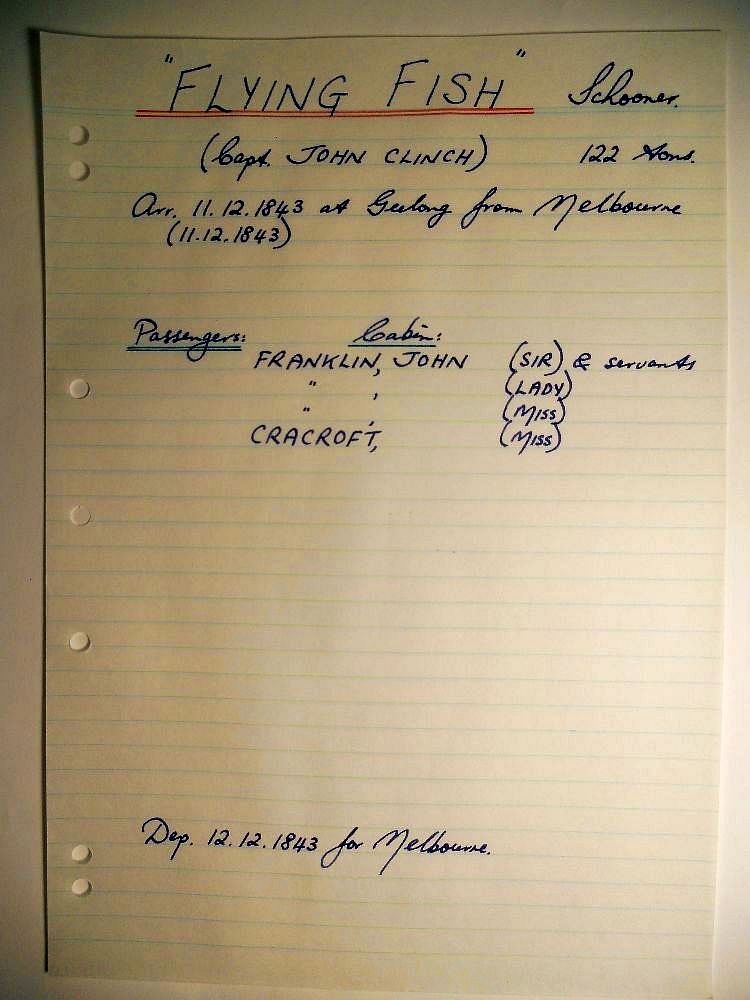 "FLYING FISH" Schooner.
(Capt. JOHN CLINCH) 122 tons.
Arr. 11.12.1843 at Geelong from Melbourne
(11.12.1843)
Passengers: Cabin:
FRANKLIN, JOHN (SIR) & servants
" , (LADY)
" , (MISS)
CRACROFT, (MISS)
Dep. 12.12.1843 for Melbourne.